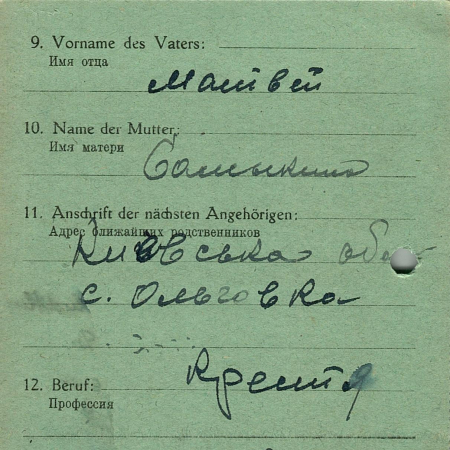 9. Vorname des Vaters:
Имя отца
Матвей
10. Name der Mutter:
Имя матери
Самыкина
11. Anschrift der nächsten Angehörigen:
Адрес ближайших родственников
Київська обл
с. Ольговка
12. Beruf:
Профессия